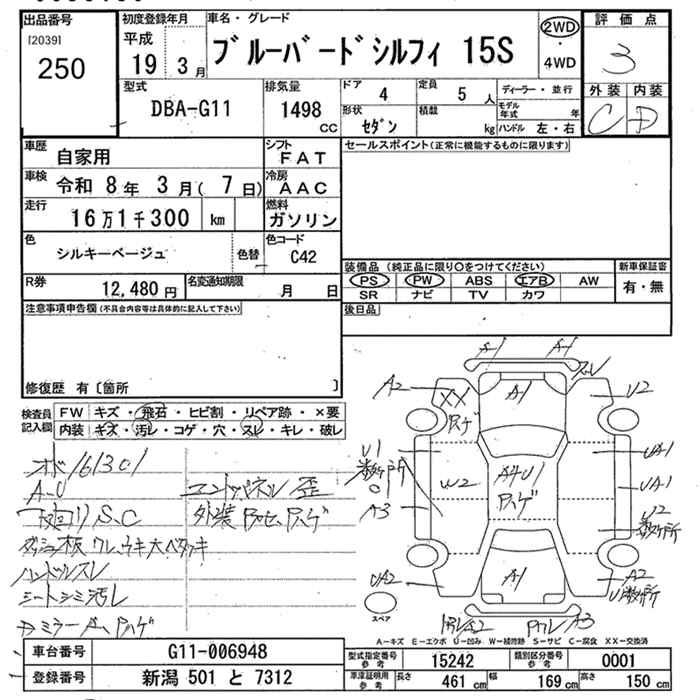 出品番号
[2039]
250
初度登録年月
平成
19 3月
車名・グレード
ブルーバードシルフィ 15S
2WD
・
4WD
評価点
3
外装 内装
C D
型式
DBA-G11
排気量
1498
CC
ドア
4
定員
5 人
形状
セダン
積載
kg
ディーラー・並行
モデル年式 年
ハンドル 左・右
車歴
自家用
シフト
FAT
車検
令和 8年 3月( 7日)
冷房
AAC
走行
16万1千300 km
燃料
ガソリン
色
シルキーベージュ
色替
色コード
C42
R券
12,480円
名変通知期限
月 日
セールスポイント(正常に機能するものに限ります)
装備品 (純正品に限り〇をつけてください)
PS PW ABS エアB AW
SR ナビ TV カワ
新車保証書
有・無
後日品
注意事項申告欄(不具合内容等は具体的に記入して下さい)
修復歴 有〔箇所 〕
検査員
記入欄
FW キズ・飛石・ヒビ割・リペア跡・×要
内装 キズ・汚レ・コゲ・穴・スレ・キレ・破レ
オド161301
A-U
下廻り S.C
ダッシュ板 ワレ、ウキ大ベタツキ
ハンドルスレ
シートシミ汚レ
フロントパネル 歪
外装
A-1
A-1
スレ
A2
XX
ハゲ
A-1
U2
U1
数ヶ所
A3
W2
A4U1
ハゲ
UA1
UA1
U2
数ヶ所
UA2
A-1
A2
U数ヶ所
A3
スペア
A-キズ E-エクボ U-凹み W-補修跡 S-サビ C-腐食 XX-交換済
車台番号
G11-006948
登録番号
新潟 501 と 7312
型式指定番号
参考
15242
類別区分番号
参考
0001
車庫証明用
参考
長さ
461 cm
幅
169 cm
高さ
150 cm